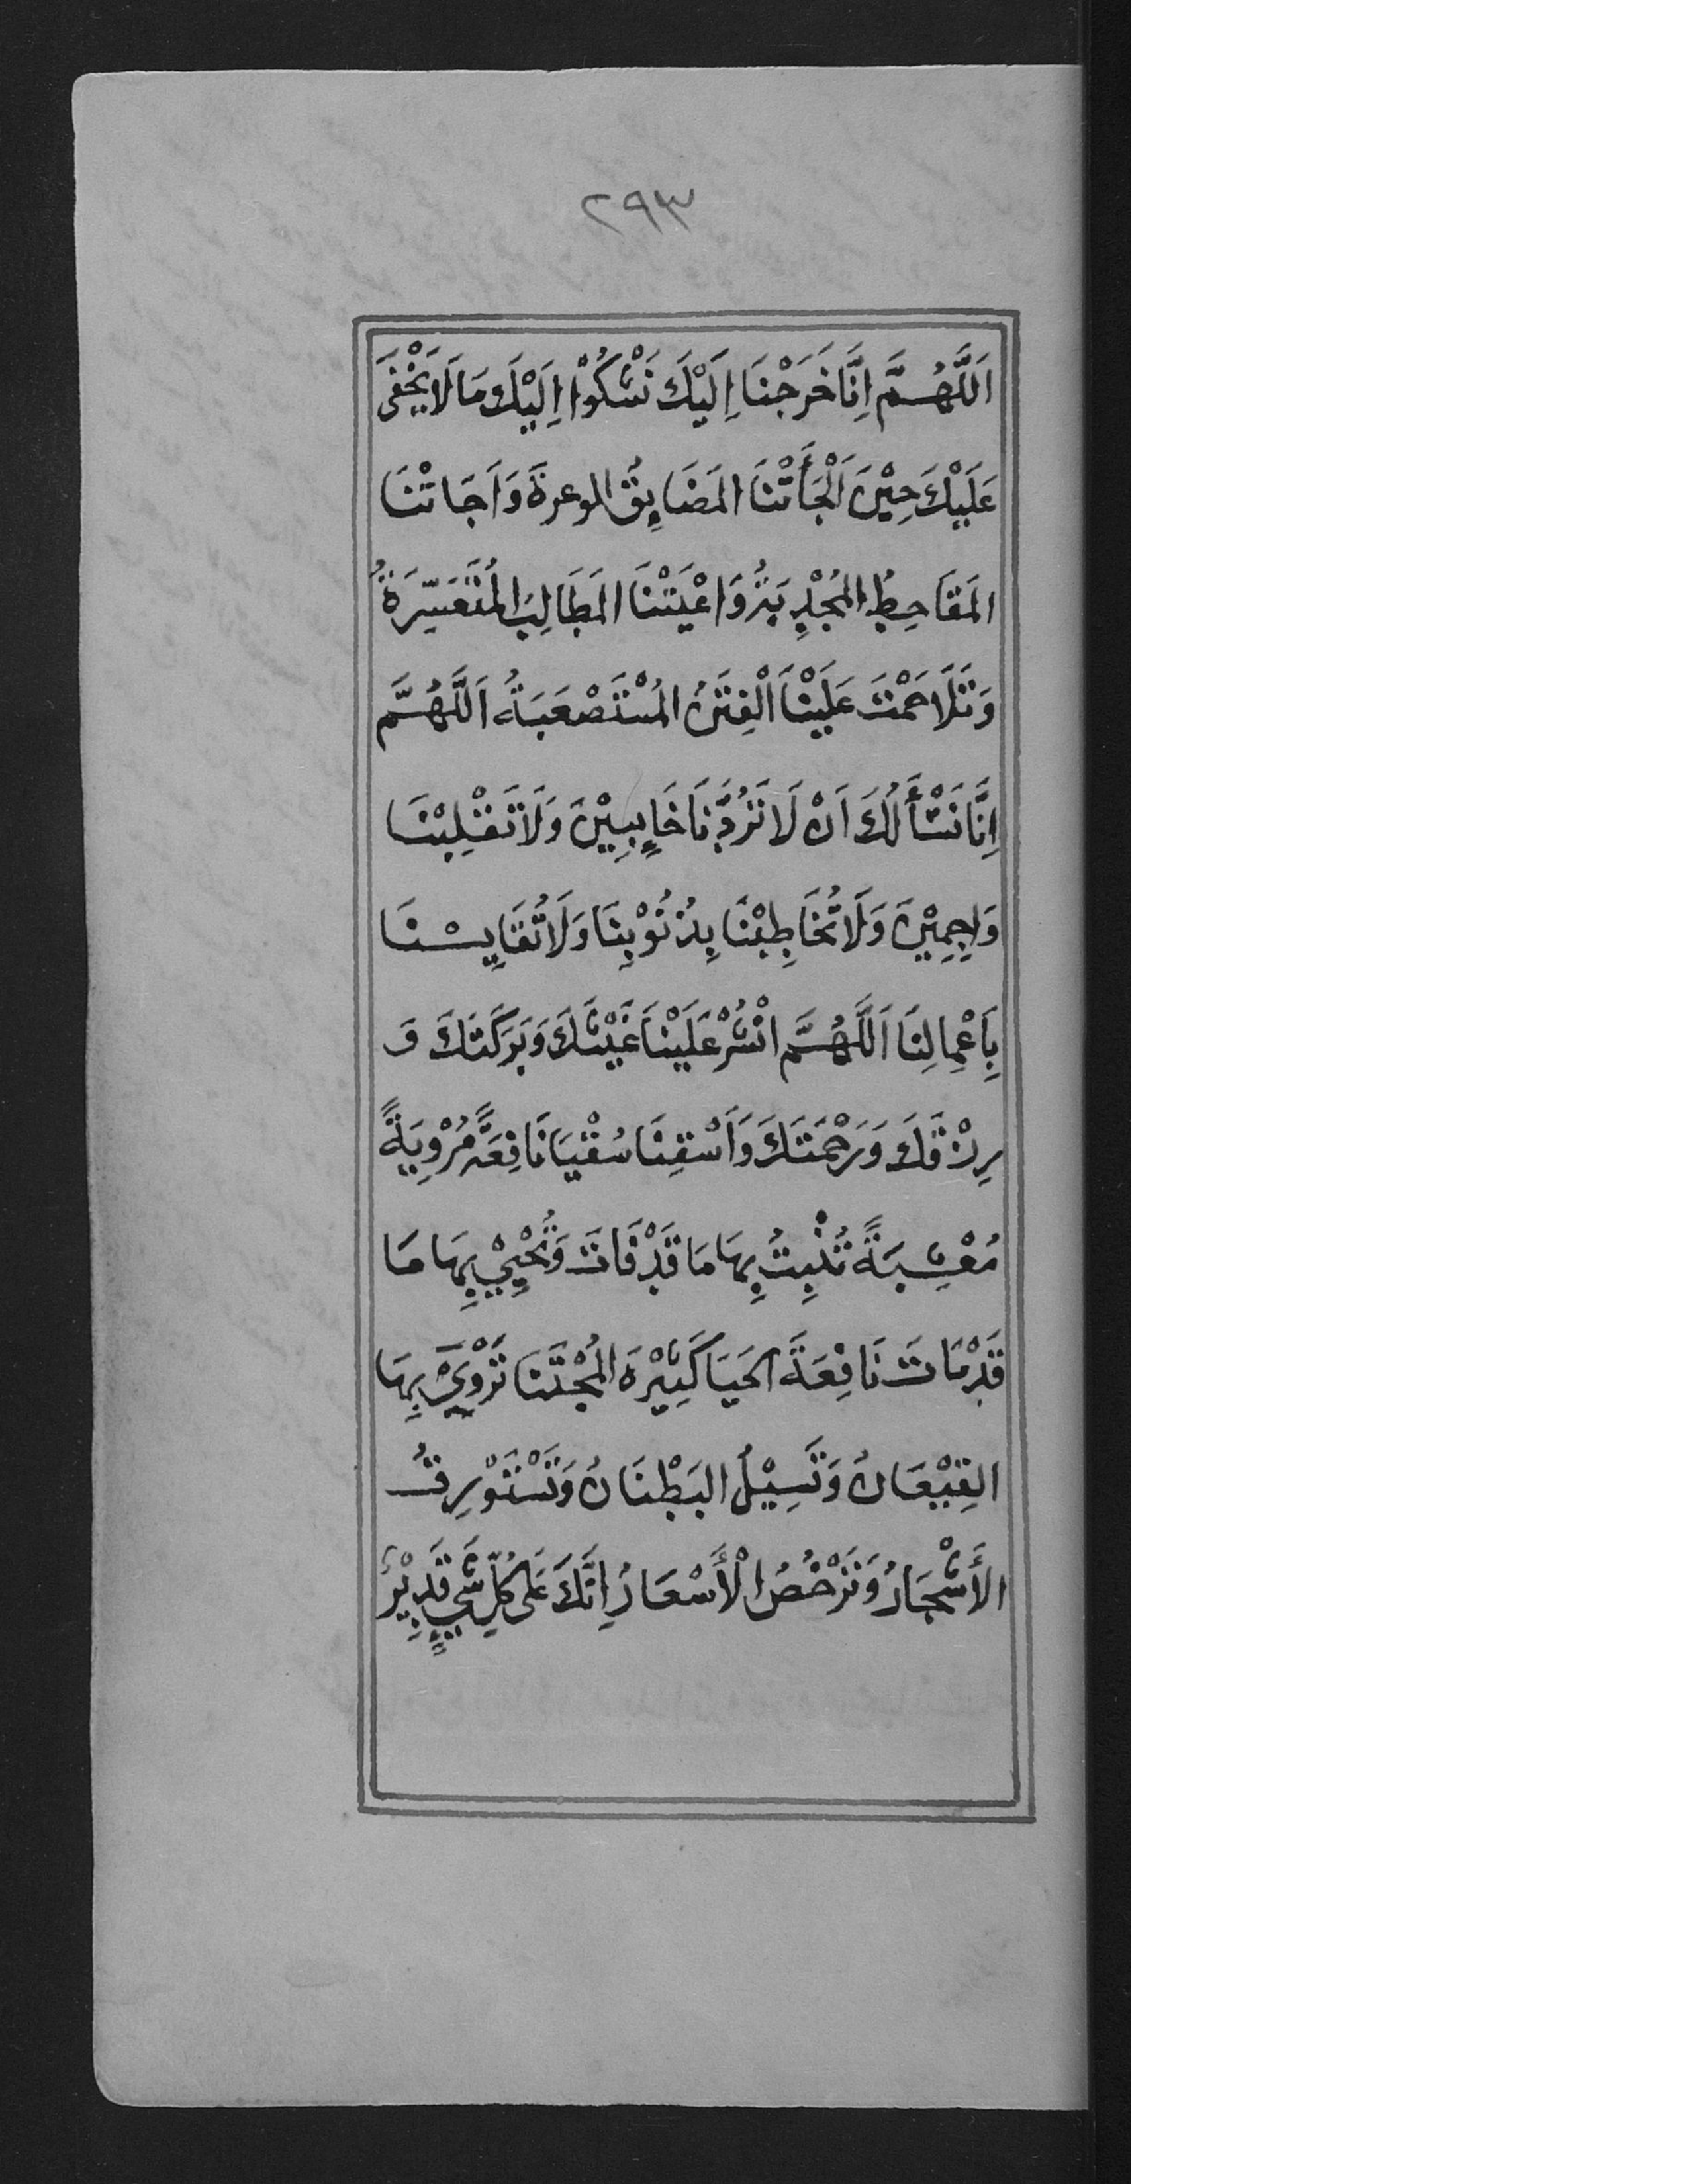 ٢٩٣
اَللَّهُمَّ اِنَّا خَرَجْنَا اِلَيْكَ نَشْكُوْا اِلَيْكَ مَا لَا يَخْفَى
عَلَيْكَ حِيْنَ اَلْجَأَتْنَا المَضَايِقُ الوعرة وَاَجَاتْنَا
المَقَاحِطُ المُجْدِبَتُ وَاعْيَتْنَا المَطَالِبُ المُتَعَسِّرَةُ
وَتَلَاحَمْتَ عَلَيْنَا اَلْفِتَنُ المُسْتَصْعَبَةُ اَللَّهُمَّ
اِنَّا نَسْأَلُكَ اَنْ لَا تَرُدَّنَا خَايِبِيْنَ وَلَا تَقْلِبْنَا
وَاجِمِيْنَ وَلَا تُخَاطِبْنَا بِذُنُوْبِنَا وَلَا تُقَايِسْنَا
بِاَعْمِالِنَا اَللَّهُمَّ انْشُرْ عَلَيْنَا غَيْثَكَ وَبَرَكَتَكَ وَ
رِزْقَكَ وَرَحْمَتَكَ وَاَسْقِنَا سُقْيَا نَافِعَةً مُرْوِيَةً
مُعْشِبَةً تُنْبِتُ بِهَا مَا قَدْ فَاتَ وَتُحْيِيْ بِهَا مَا
قَدْ مَاتَ نَافِعَةَ الحَيَا كَثِيْرَةَ المُجْتَنَا تَرْوِيْ بِهَا
القِيْعَانُ وَتَسِيْلُ البَطْنَانُ وَتَسْتَوْرِقُ
الأَشْجَارُ وَتَرْخُصُ الْأَسْعَارُ اِنَّكَ عَلَى كُلِّ شَيٍ قَدِيْرٌ